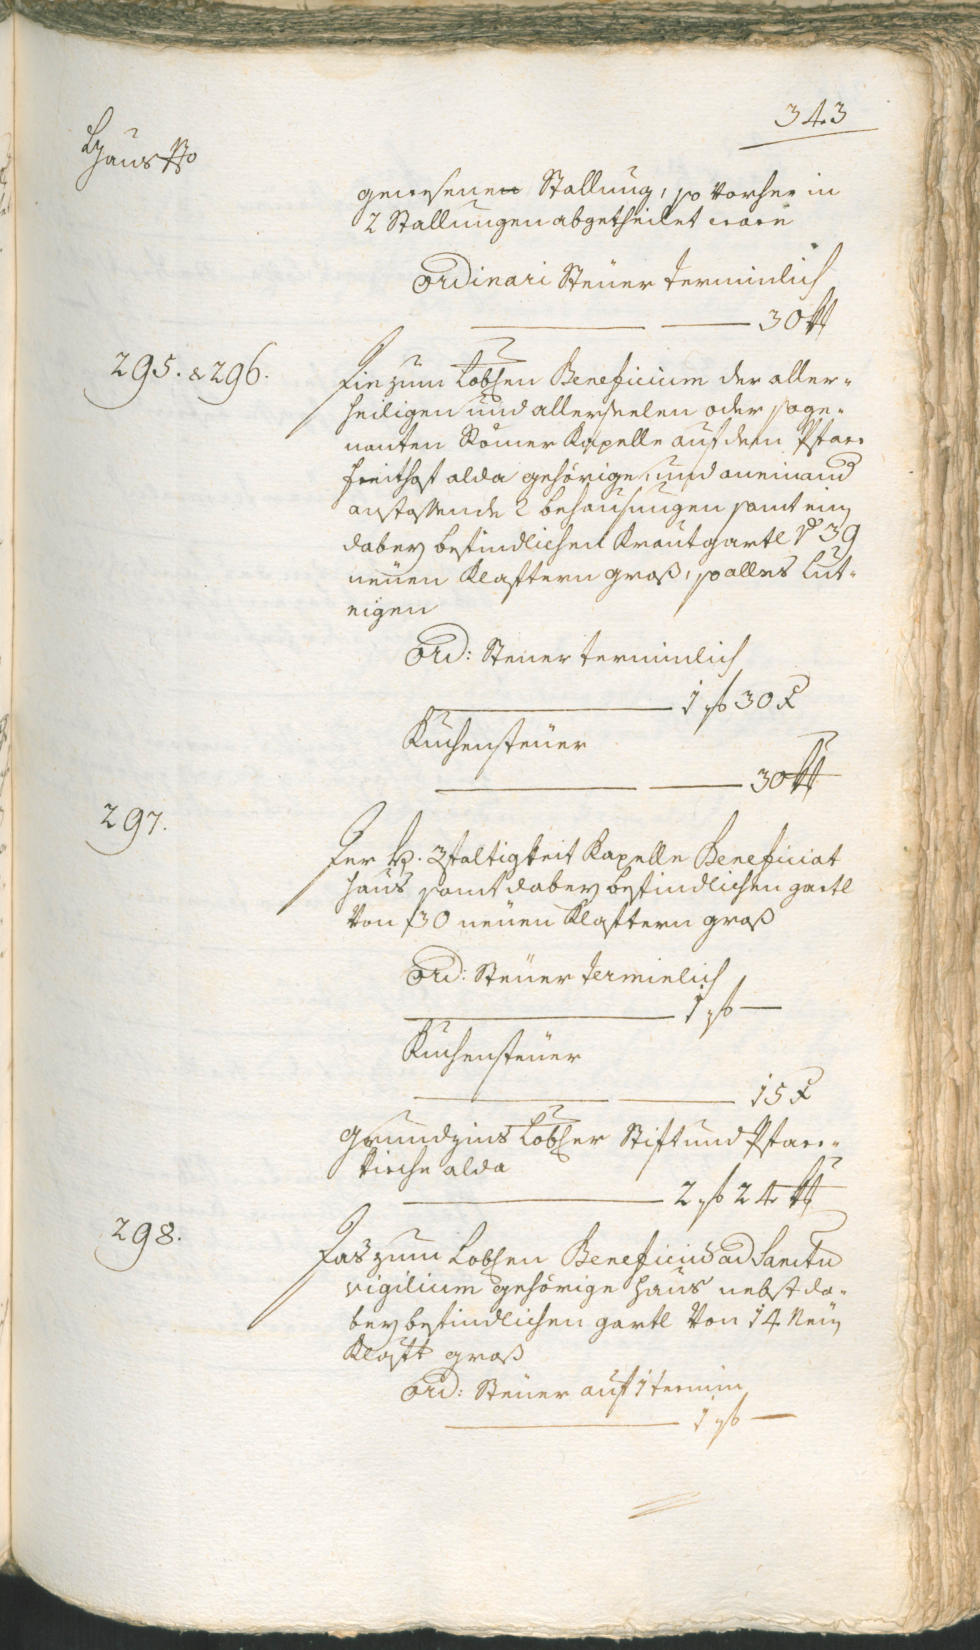 343
Haus Nro
gewesenen Stallung, so vorher in
2 Stallungen abgetheilet ware
Ordinari Steuer terminlich
30 kr
295. & 296.
Die zum Lobl:en Beneficium der aller-
heiligen und allerseelen oder soge-
nanten Römer Kapelle auf dem Pfarr
freithof alda gehörige, und aneinand
anstossende 2 behausungen samt ein
dabey befindlichen Krautgartl p 39
neuen Klaftern groß, so alles Lut-
eigen
Ord: Steuer terminlich
1 fl 30 x
Kuchensteuer
30 kr
297.
Der h. 3faltigkeit Kapelle Beneficiat
haus samt dabey befindlichen gartl
von 30 neuen Klaftern groß
Ord: Steuer terminlich
1 fl —
Kuchensteuer
15 x
Grundzins Lobl:er Stift und Pfarr-
kirche alda
2 fl 24 kr
298.
Das zum Lobl:en Beneficium ad Sanctu
vigilium gehörige haus nebst da-
bey befindlichen gartl von 14 Neu
Klaft groß
Ord: Steuer auf 1 termin
1 fl —